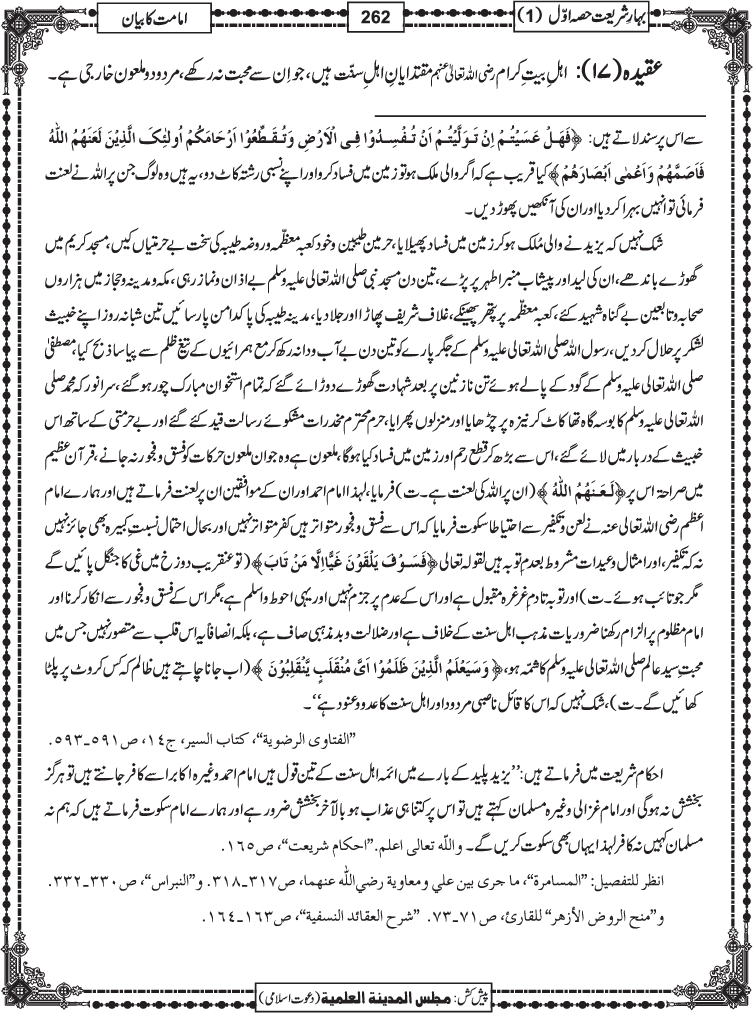 بہارِ شریعت حصہ اوّل (1)
262
امامت کا بیان
عقیدہ (۱۷): اہلِ بیتِ کرام رضی اللہ تعالیٰ عنہم مقتدایانِ اہلِ سنّت ہیں، جو اِن سے محبت نہ رکھے، مردود و ملعون خارجی ہے۔
سے اس پر سند لاتے ہیں: ﴿فَهَلْ عَسَيْتُمْ اِنْ تَوَلَّيْتُمْ اَنْ تُفْسِدُوْا فِى الْاَرْضِ وَتُقَطِّعُوْا اَرْحَامَكُمْ اُولٰئِكَ الَّذِيْنَ لَعَنَهُمُ اللّٰهُ
فَاَصَمَّهُمْ وَاَعْمٰى اَبْصَارَهُمْ﴾ کیا قریب ہے کہ اگر والی ملک ہو تو زمین میں فساد کرو اور اپنے نسبی رشتہ کاٹ دو، یہ ہیں وہ لوگ جن پر اللہ نے لعنت
فرمائی تو انہیں بہرا کردیا اور ان کی آنکھیں پھوڑ دیں۔
شک نہیں کہ یزید نے والی مُلک ہو کر زمین میں فساد پھیلایا، حرمین طیبین و خود کعبہ معظّمہ و روضہ طیبہ کی سخت بے حرمتیاں کیں، مسجد کریم میں
گھوڑے باندھے، ان کی لید اور پیشاب منبر اطہر پر پڑے، تین دن مسجد نبی صلی اللہ تعالی علیہ وسلم بے اذان و نماز رہی، مکہ و مدینہ و حجاز میں ہزاروں
صحابہ و تابعین بے گناہ شہید کئے، کعبہ معظّمہ پر پتھر پھینکے، غلاف شریف پھاڑا اور جلا دیا، مدینہ طیبہ کی پاکدامن پارسائیں تین شبانہ روز اپنے خبیث
لشکر پر حلال کردیں، رسول اللہ صلی اللہ تعالی علیہ وسلم کے جگر پارے کو تین دن بے آب و دانہ رکھ کر مع ہمرائیوں کے تیغ ظلم سے پیاسا ذبح کیا، مصطفیٰ
صلی اللہ تعالی علیہ وسلم کے گود کے پالے ہوئے تن نازنین پر بعد شہادت گھوڑے دوڑائے گئے کہ تمام استخوان مبارک چور ہوگئے، سر انور کہ محمد صلی
اللہ تعالی علیہ وسلم کا بوسہ گاہ تھا کاٹ کر نیزہ پر چڑھایا اور منزلوں پھرایا، حرم محترم مخدرات مشکوئے رسالت قید کئے گئے اور بے حرمتی کے ساتھ اس
خبیث کے دربار میں لائے گئے، اس سے بڑھ کر قطع رحم اور زمین میں فساد کیا ہوگا، ملعون ہے وہ جو ان ملعون حرکات کو فسق و فجور نہ جانے، قرآن عظیم
میں صراحۃ اس پر ﴿لَعَنَهُمُ اللّٰهُ﴾ (ان پر اللہ کی لعنت ہے۔ ت) فرمایا، لہذا امام احمد اور ان کے موافقین ان پر لعنت فرماتے ہیں اور ہمارے امام
اعظم رضی اللہ تعالی عنہ نے لعن و تکفیر سے احتیاطا سکوت فرمایا کہ اس سے فسق و فجور متواتر ہیں کفر متواتر نہیں اور بحال احتمال نسبتِ کبیرہ بھی جائز نہیں
نہ کہ تکفیر، اور امثال وعیدات مشروط بعدم توبہ ہیں لقولہ تعالی ﴿فَسَوْفَ يَلْقَوْنَ غَيًّا اِلَّا مَنْ تَابَ﴾ (تو عنقریب دوزخ میں غی کا جنگل پائیں گے
مگر جو تائب ہوئے۔ ت) اور توبہ تادمِ غرغرہ مقبول ہے اور اس کے عدم پر جزم نہیں اور یہی احوط و اسلم ہے، مگر اس کے فسق و فجور سے انکار کرنا اور
امام مظلوم پر الزام رکھنا ضروریات مذہب اہل سنت کے خلاف ہے اور ضلالت و بد مذہبی صاف ہے، بلکہ انصافا یہ اس قلب سے متصور نہیں جس میں
محبتِ سید عالم صلی اللہ تعالی علیہ وسلم کا شمّہ ہو، ﴿وَسَيَعْلَمُ الَّذِيْنَ ظَلَمُوْا اَىَّ مُنْقَلَبٍ يَّنْقَلِبُوْنَ﴾ (اب جانا چاہتے ہیں ظالم کہ کس کروٹ پر پلٹا
کھائیں گے۔ ت)، شک نہیں کہ اس کا قائل ناصبی مردود اور اہل سنت کا عدو و عنود ہے“۔
”الفتاوی الرضوية“، كتاب السير، ج١٤، ص٥٩١۔٥٩٣.
احکام شریعت میں فرماتے ہیں: ”یزید پلید کے بارے میں ائمہ اہل سنت کے تین قول ہیں امام احمد وغیرہ اکابر اسے کافر جانتے ہیں تو ہرگز
بخشش نہ ہوگی اور امام غزالی وغیرہ مسلمان کہتے ہیں تو اس پر کتنا ہی عذاب ہو بالآخر بخشش ضرور ہے اور ہمارے امام سکوت فرماتے ہیں کہ ہم نہ
مسلمان کہیں نہ کافر لہذا یہاں بھی سکوت کریں گے۔ واللّٰه تعالى اعلم. ”احکام شریعت“، ص١٦٥.
انظر للتفصيل: ”المسامرة“، ما جرى بين علي ومعاوية رضي اللّٰه عنهما، ص٣١٧۔٣١٨. و”النبراس“، ص٣٣٠۔٣٣٢.
و”منح الروض الأزهر“ للقارئ، ص٧١۔٧٣. ”شرح العقائد النسفية“، ص١٦٣۔١٦٤.
پیش کش: مجلس المدینۃ العلمیۃ (دعوتِ اسلامی)